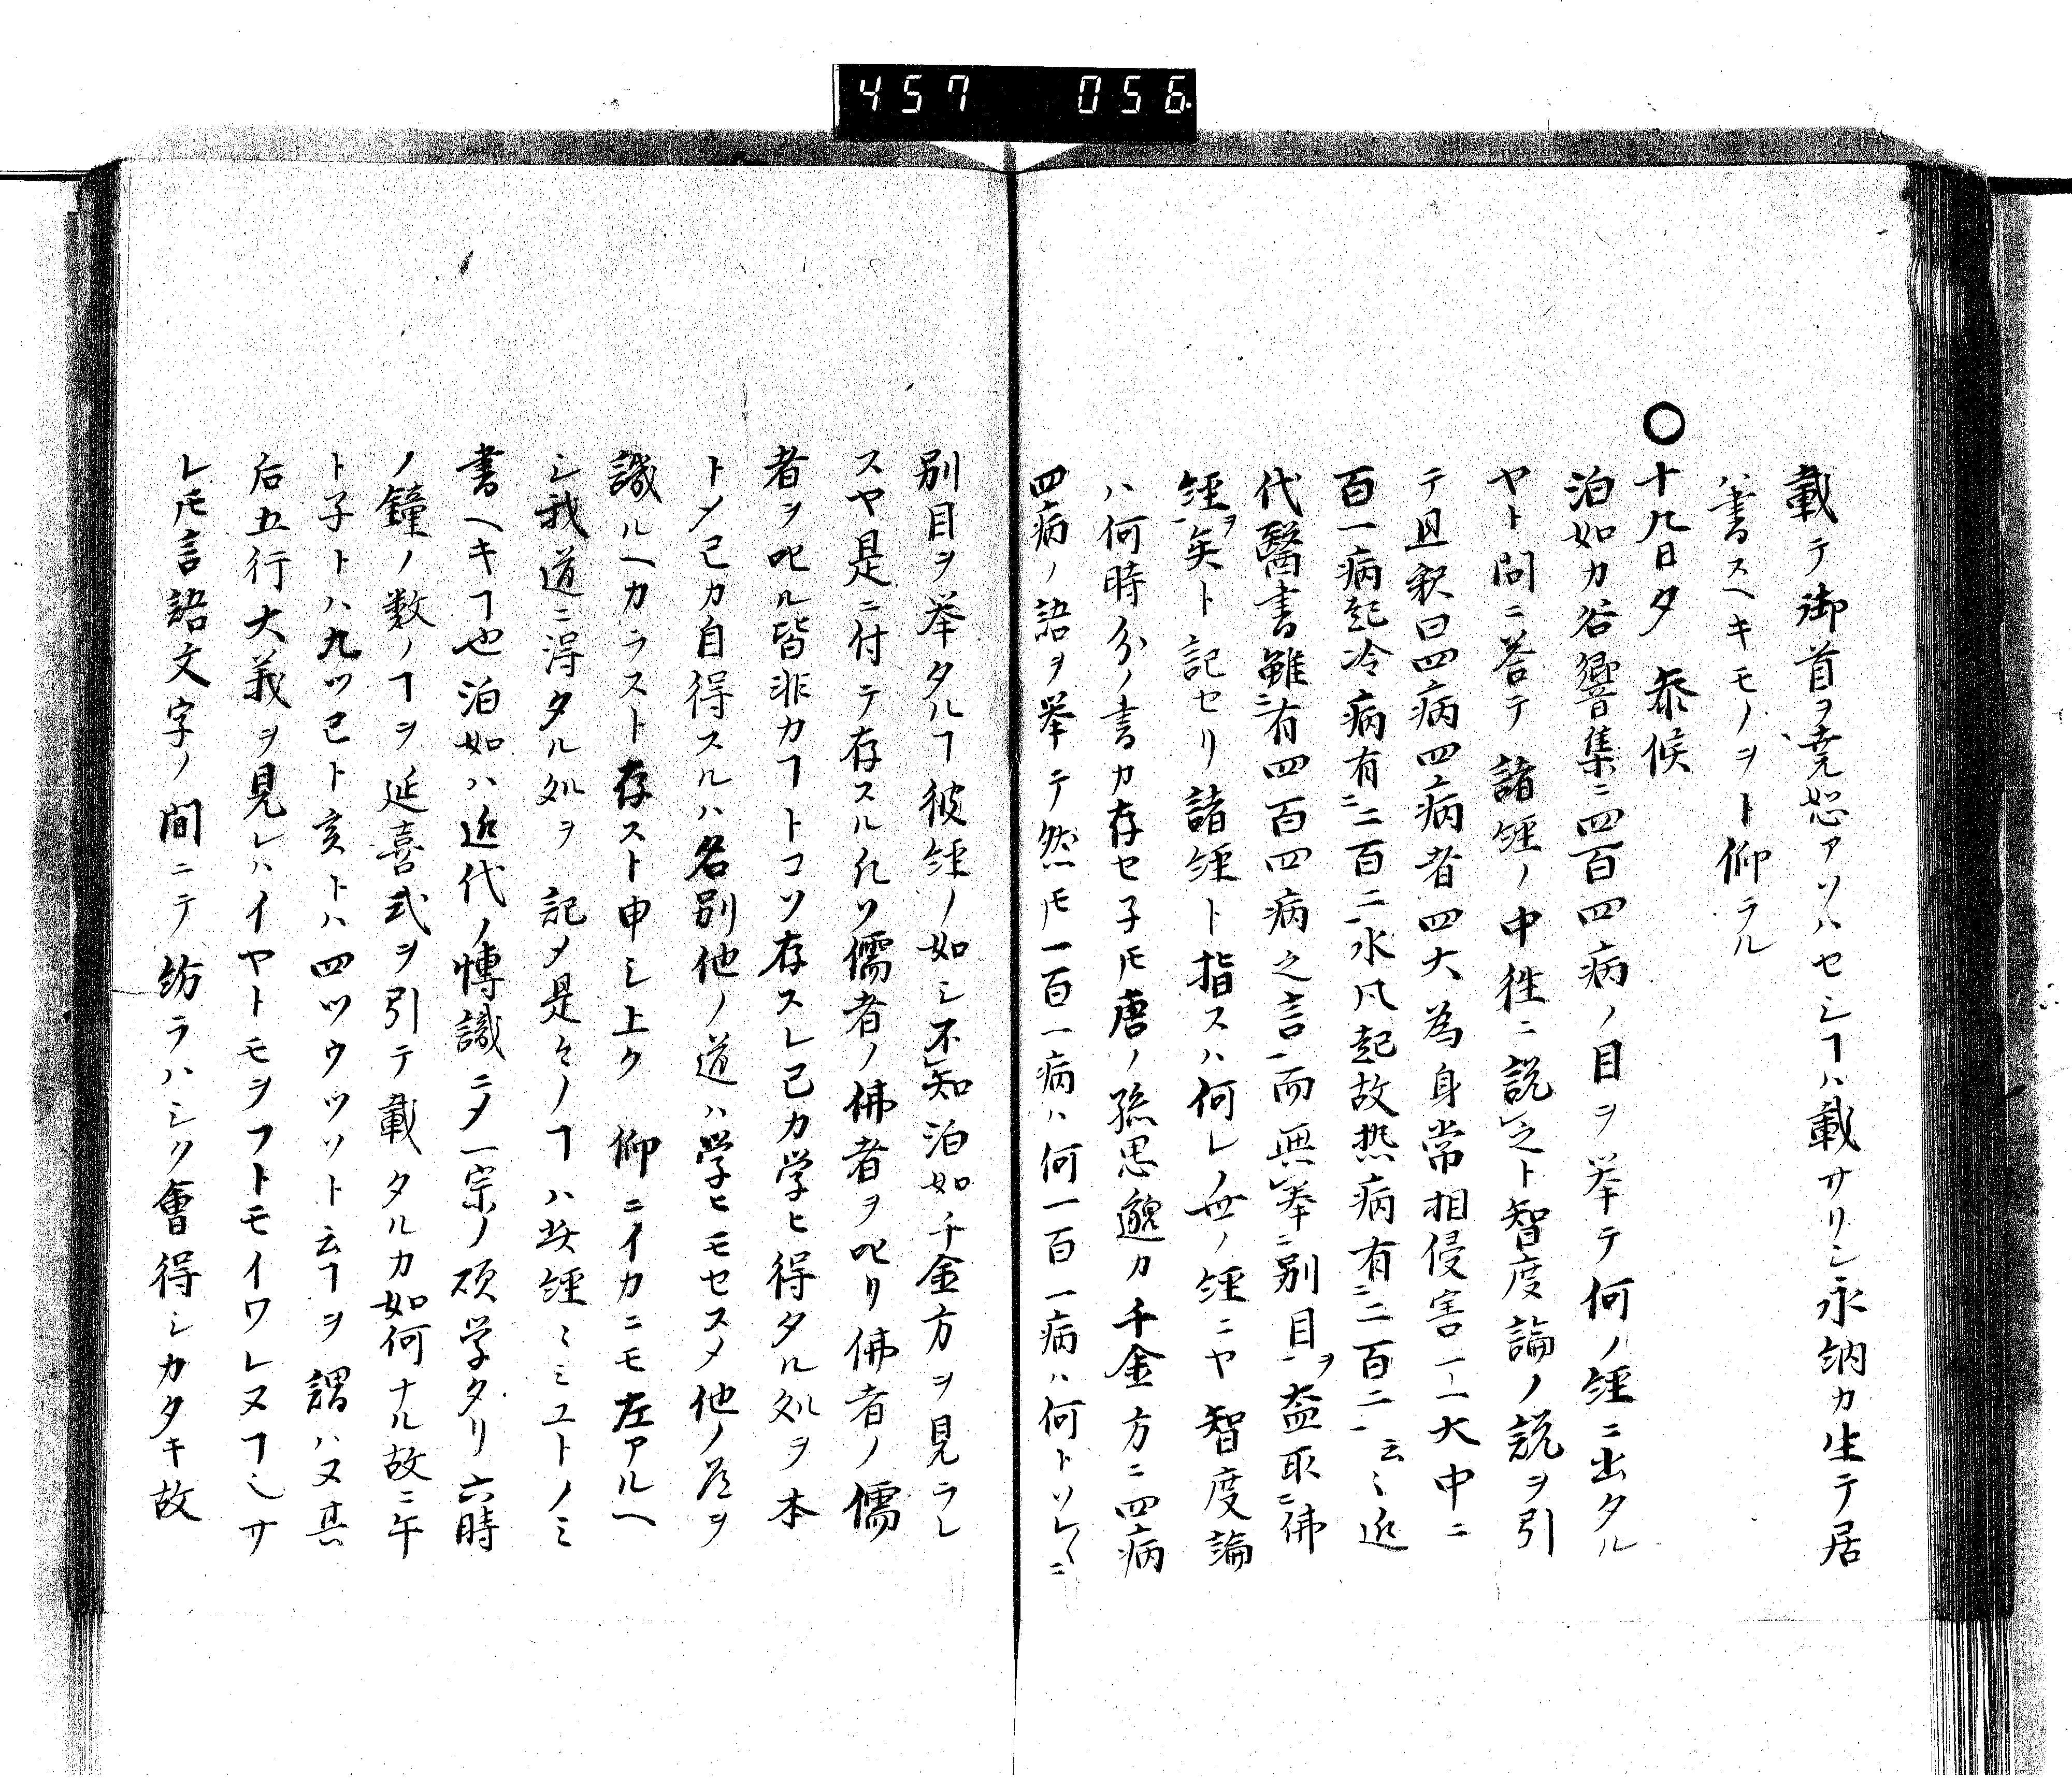 457 056
載テ御首ヲ堯恕アソハセシヿハ載サリシ永納カ生テ居
ハ書スヘキモノヲト仰ラル
〇十九日夕 参候
泊如カ谷響集ニ四百四病ノ目ヲ挙テ何ノ経ニ出タル
ヤト問ニ答テ諸経ノ中往ニ説之ト智度論ノ説ヲ引
テ且釈曰四病四病者四大為身常相侵害一一大中ニ
百一病起冷病有二百二水风起故热病有二百二云〻近
代醫書雖有四百四病之言而無挙別目ヲ盖取佛
経ヲ矣ト記セリ諸経ト指スハ何レノ世ノ経ニヤ智度論
ハ何時分ノ書カ存セ子𪜈唐ノ孫思邈カ千金方ニ四病
四病ノ語ヲ挙テ然𪜈一百一病ハ何一百一病ハ何トソレ〱ニ
別目ヲ挙タルヿ彼経ノ如シ不知泊如千金方ヲ見ラレ
スヤ是ニ付テ存スル凡ソ儒者ノ佛者ヲ叱リ佛者ノ儒
者ヲ叱ル皆非カヿトコソ存スレ己カ学ヒ得タル処ヲ本
トメ己カ自得スルハ各別他ノ道ハ学ヒモセスメ他ノ道ヲ
譏ルヘカラスト存スト申シ上ク 仰ニイカニモ左アルヘ
シ我道ニ得タル処ヲ記メ是々ノヿハ此経〻ミユトノミ
書ヘキヿ也泊如ハ近代ノ博識ニメ一宗ノ碩学タリ六時
ノ鐘ノ数ノヿヲ延喜式ヲ引テ載タルカ如何ナル故ニ午
ト子トハ九ツ巳ト亥トハ四ツウツソト云ヿヲ謂ハヌ其
后五行大義ヲ見レハイヤトモヲフトモイワレヌヿ也サ
レ𪜈言語文字ノ間ニテ紛ラハシク會得シカタキ故